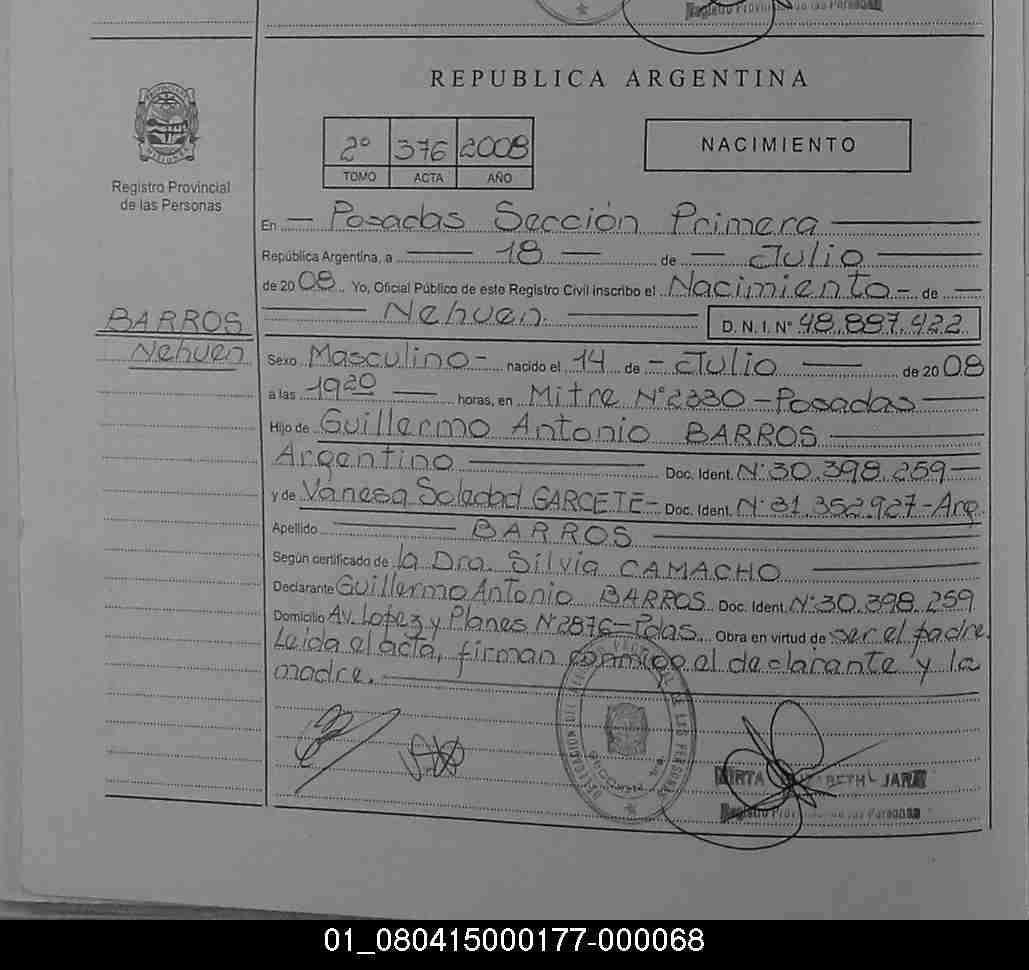 Registro Provincial de las Personas
REPUBLICA ARGENTINA
2º 376 2008
TOMO ACTA AÑO
NACIMIENTO
Registro Provincial
de las Personas
En — Posadas Sección Primera
República Argentina, a — 18 — de — Julio
de 2008. Yo, Oficial Público de este Registro Civil inscribo el Nacimiento - de —
Nehuen. — D. N. I. Nº 48.887.422
BARROS
Nehuen
Sexo Masculino - nacido el 14 de - Julio — de 2008
a las 1920 — horas, en Mitre Nº 2330 - Posadas
Hijo de Guillermo Antonio BARROS
Argentino — Doc. Ident. Nº 30.398.259 —
y de Vanesa Soledad GARCETE - Doc. Ident. Nº 31.352.927 - Arg.
Apellido — BARROS
Según certificado de la Dra. Silvia CAMACHO
Declarante Guillermo Antonio BARROS Doc. Ident. Nº 30.398.259
Domicilio Av. Lopez y Planes Nº 2876 - Pdas. Obra en virtud de ser el padre.
Leida el acta, firman conmigo el declarante y la
madre.
JARA
Registro Provincial de las Personas
01_080415000177-000068